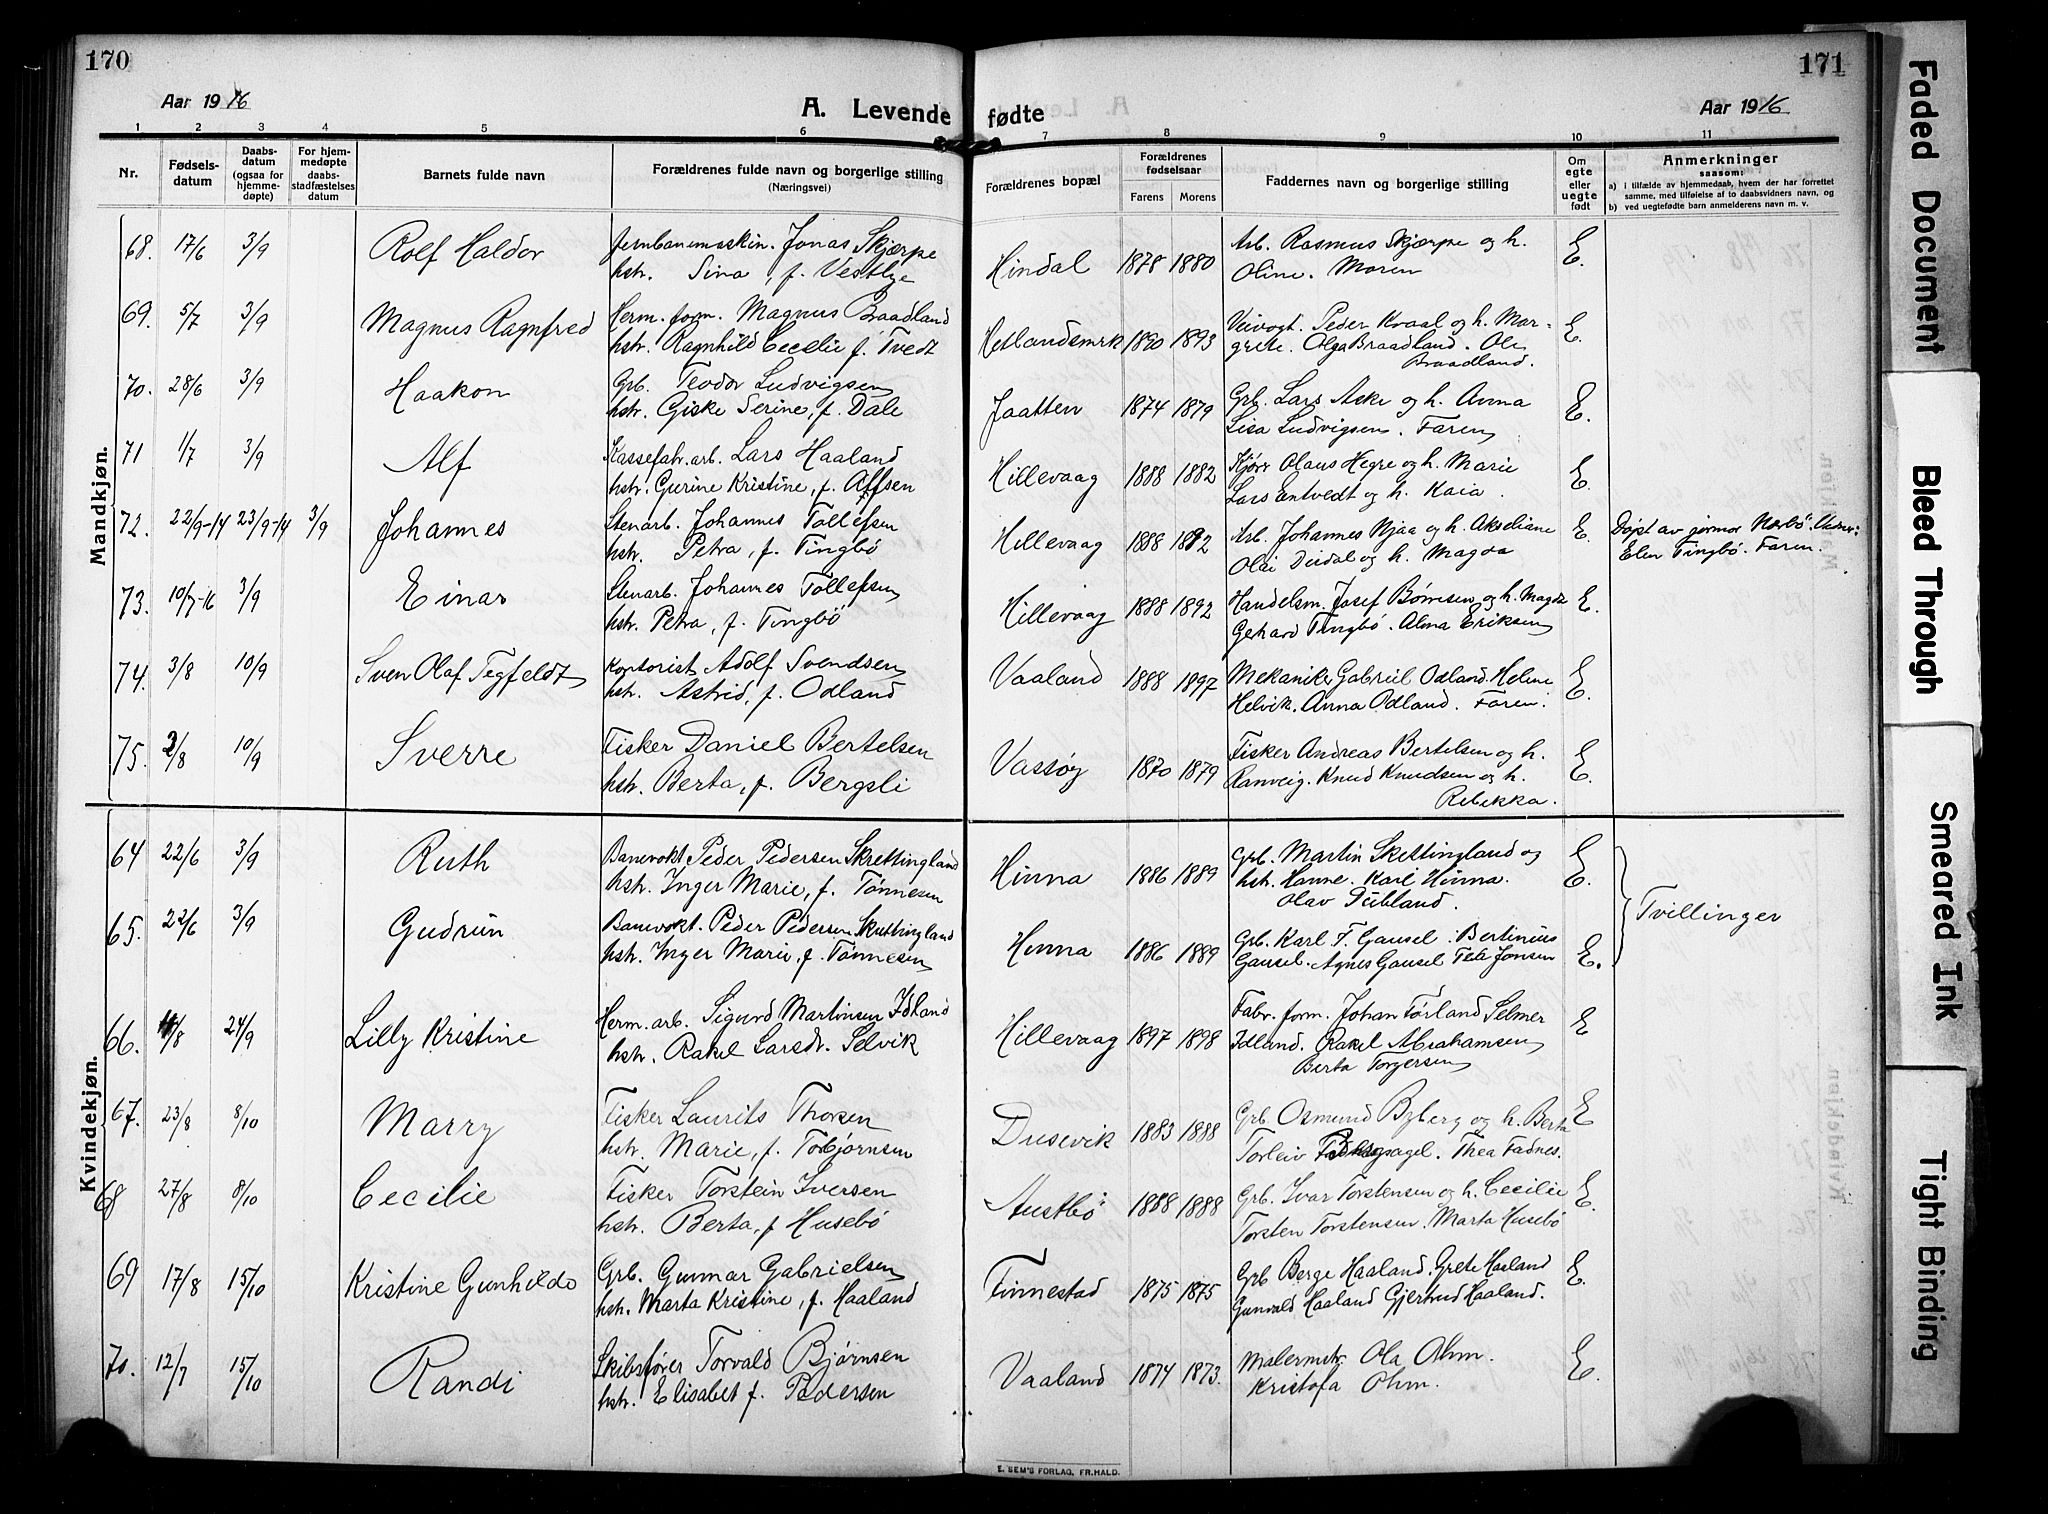 170
171
Aar 1916
A. Levende fødte
Aar 1916
1 2 3 4 5 6 7 8 9 10 11
Nr.
Fødselsdatum
Daabsdatum (ogsaa for hjemmedøpte)
For hjemmedøpte daabsstadfæstelses datum
Barnets fulde navn
Forældrenes fulde navn og borgerlige stilling (Næringsvei)
Forældrenes bopæl
Forældrenes fødselsaar
Farens Morens
Faddernes navn og borgerlige stilling
Om egte eller uegte født
Anmerkninger
saasom:
a) i tilfælde av hjemmedaab, hvem der har forrettet samme, med tilføielse av to daabsvidners navn, og
b) ved uegtefødte barn anmelderens navn m. v.
Mandkjøn.
68. 17/6 3/9 Rolf Haldor Jernbanemaskin. Jonas Skjærpe Hindal 1878 1880 Arb. Rasmus Skjærpe og h. E.
hstr. Sina, f. Vestlye Oline. Moren
69. 5/7 3/9 Magnus Ragnfred Herm. form. Magnus Braadland Hetlandsmrk 1890 1893 Veivogt. Peder Kvaal og h. Mar- E.
hstr. Ragnhild Cecelie f. Tvedt grete. Olga Braadland. Ole
Braadland.
70. 28/6 3/9 Haakon Grb. Teodor Ludvigsen Jaatten 1874 1879 Grb. Lars Aske og h. Anna E.
hstr. Giske Serine, f. Dale Lisa Ludvigsen. Faren
71 1/7 3/9 Alf Kassefabr. arb. Lars Haaland Hillevaag 1888 1882 Kjørr Olaus Hegre og h. Marie E.
hstr. Gurine Kristine, f. Alfsen Lars Entvedt og h. Kaia.
72. 22/9-14 23/9-14 3/9 Johannes Stenarb. Johannes Tollefsen Hillevaag 1888 1892 Arb. Johannes Njaa og h. Akseliane E. Døpt av jormor Nærbø.
hstr. Petra, f. Tingbø Olai Dirdal og h. Magda Elen Tingbø. Faren.
73. 10/7-16 3/9 Einar Stenarb. Johannes Tollefsen Hillevaag 1888 1892 Handelsm. Josef Børresen og h. Magda E.
hstr. Petra, f. Tingbø Gehard Tingbø. Alma Eriksen
74. 3/8 10/9 Sven Olaf Tegfeldt Kontorist Adolf Svendsen Vaaland 1888 1897 Mekaniker Gabriel Odland. Helene E.
hstr. Astrid, f. Odland Helvik. Anna Odland. Faren.
75. 2/8 10/9 Sverre Fisker Daniel Bertelsen Vassøy 1870 1879 Fisker Andreas Bertelsen og h. E.
hstr. Berta, f. Bergsli Ranveig. Knud Knudsen og h.
Rebekka.
Kvindekjøn.
64 22/6 3/9 Ruth Banevokt Peder Pedersen Skrettingland Hinna 1886 1889 Grb. Martin Skettingland og E.
hstr. Inger Marie, f. Tønnesen hstr. Hanne. Karl Hinna.
Olav
Tvillinger
65. 22/6 3/9 Gudrun Banevokt. Peder Pedersen Skrettingland Hinna 1886 1889 Grb. Karl F. Gausel. Bertinius E.
hstr. Inger Marie, f. Tønnesen Gausel. Agnes Gausel Jonsen
66. 24/9 Lilly Kristine Herm. arb. Sigurd Martinsen Idland Hillevaag 1897 1898 Fabr. form. Johan Førland Selmer E
hstr. Rakel Larsdr. Selvik Idland. Rakel Abrahamsen
Berta Torgersen
67. 23/8 8/10 Marry Fisker Laurits Thorsen Dusevik 1883 1888 Grb. Osmund Byberg og h. Berta E
hstr. Marie, f. Torbjørnsen Torleiv Thea Fadnes.
68 27/8 8/10 Cecilie Fisker Torstein Iversen Austbø 1888 1888 Grb. Ivar Torstensen og h. Cecilie E.
hstr. Berta, f Husebø Torsten Torstensen. Marta Husebø
69 17/8 15/10 Kristine Gunhilde Grb. Gunnar Gabrielsen Finnestad 1875 1875 Grb Berge Haaland. Grete Haaland E.
hstr. Marta Kristine, f. Haaland Gunvald Haaland Gjertrud Haaland.
70. 12/7 15/10 Randi Skibsfører Torvald Bjørnsen Vaaland 1874 1873. Malermstr. Ola Ohm. E.
hstr. Elisabet f. Pedersen Kristofa Ohm.
E. SEM'S FORLAG, FR.HALD.
Faded Document
Bleed Through
Smeared Ink
Tight Binding